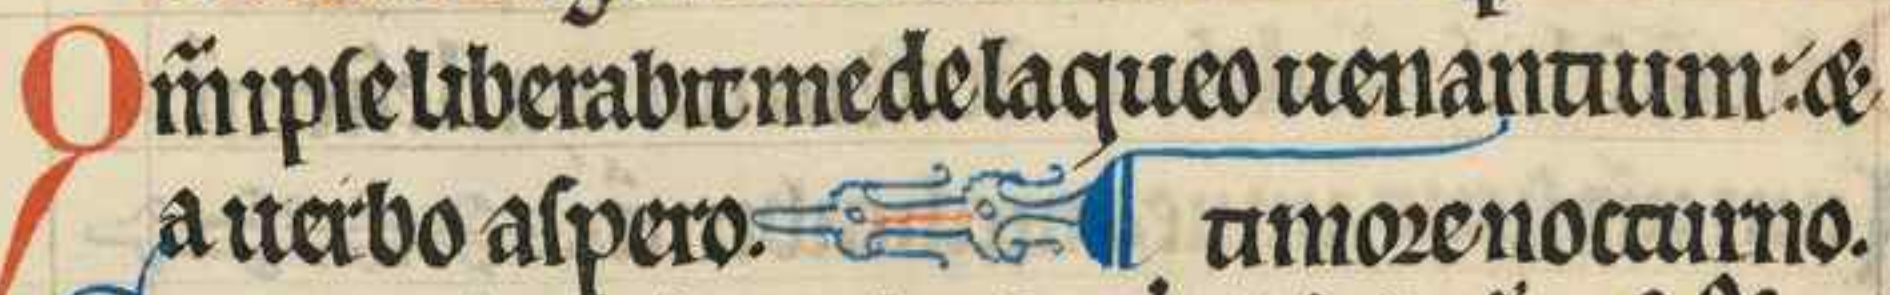 Qm̄ ipse liberabit me de laqueo uenantium: &
a uerbo aspero. timore nocturno.